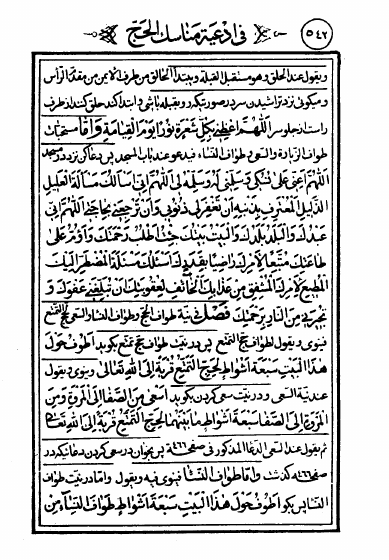 ٥٤٢ في ادعية مناسك الحج
ويقول عند الحلق وهو مستقبل القبلة ويبتدأ الحالق من طرف الايمن من مقدم الرأس
وميكوئى نزد تراشيدن سر در صورتيكه رو بقبله باشى وابتدا كند حلق كننده از طرف
راست از جلو سر اللهم اعطني بكل شعرة نورا يوم القيامة واما مستحبات
طواف الزيارة والسعى وطواف النساء فيدعو عند باب المسجد پس دعا كن نزد در مسجد
اللهم اعني على نسكي وسلمني له وسلمه لي اللهم اني اسألك مسألة العليل
الذليل المعترف بذنبه ان تغفر لي ذنوبي وان ترجعني بحاجتي اللهم اني
عبدك والبلد بلدك والبيت بيتك جئت اطلب رحمتك واؤم
طاعتك متبعا لامرك راضيا بقدرك اسألك مسئلة المضطر اليك
المطيع لامرك المشفق من عذابك الخائف لعقوبتك ان تبلغني عفوك و
تجيرني من النار برحمتك فصل في نية طواف الحج وطواف النساء والسعى لحج التمتع
فينوى ويقول لطواف حج التمتع پس در نيت طواف حج تمتع بگويد اطوف حول
هذا البيت سبعة اشواط لحج التمتع قربة الى الله تعالى وينوى ويقول
عند نية السعى ودر نيت سعى كردن بگويد اسعى من الصفا الى المروة ومن
المروة الى الصفا سبعة اشواط ما بينهما لحج التمتع قربة الى الله تعالى
ثم يقول عند السعى الدعاء المذكور في صفحه ٤٦٦ پس بخوان در سعى كردن دعائيكه در
صفحه ٤٦٦ گذشت واما طواف النساء فينوى فيه ويقول واما در نيت طواف
النساء پس بگو اطوف حول هذا البيت سبعة اشواط طواف النساء من